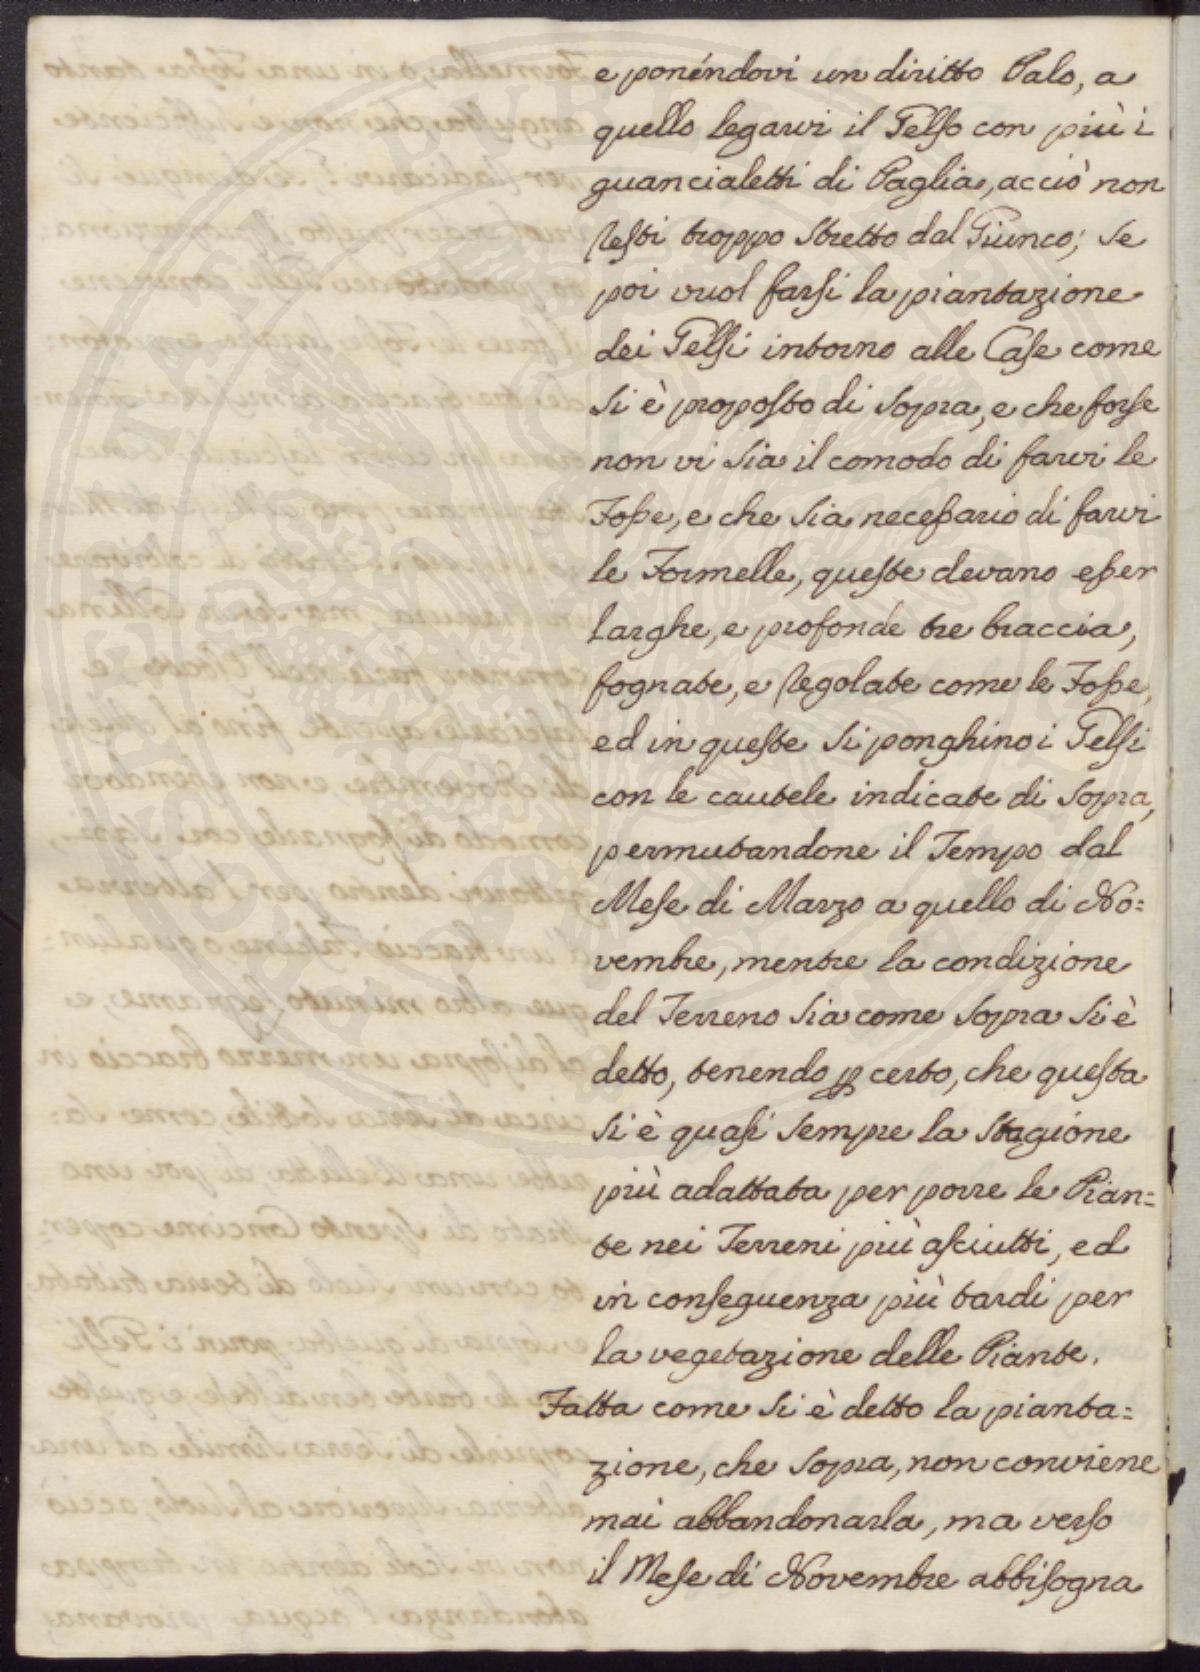 e ponéndovi un diritto Palo, a
quello legarvi il Gelso con più i
guancialetti di Paglia, acciò non
resti troppo stretto dal Giunco; se
poi vuol farsi la piantazione
dei Gelsi intorno alle Case come
si è proposto di sopra, e che forse
non vi sia il comodo di farvi le
Fosse, e che sia necessario di farvi
le Formelle, queste devano esser
larghe, e profonde tre braccia,
fognate, e regolate come le Fosse,
ed in queste si ponghino i Gelsi
con le cautele indicate di sopra,
permutandone il Tempo dal
Mese di Marzo a quello di No=
vembre, mentre la condizione
del Terreno sia come sopra si è
detto, tenendo p certo, che questa
si è quasi sempre la stagione
più adattata per porre le Pian=
te nei Terreni più asciutti, ed
in conseguenza più tardi per
la vegetazione delle Piante.
Fatta come si è detto la pianta=
zione, che sopra, non conviene
mai abbandonarla, ma verso
il Mese di Novembre abbisogna